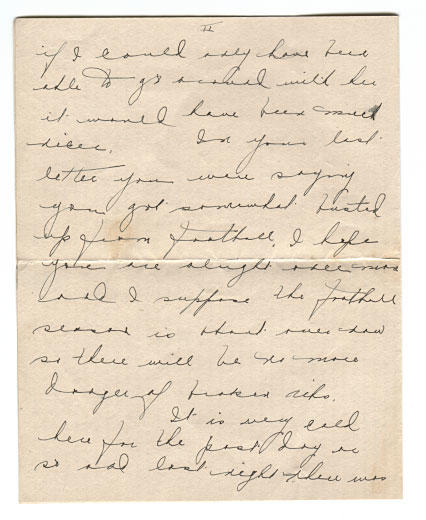 II
if I could only have been
able to go around with her
it would have been much
nicer. In your last
letter you were saying
you got somewhat busted
up from football, I hope
you're alright once more
and I suppose the football
season is about over now
so there will be no more
danger of broken ribs.
It is very cold
here for the past day or
so and last night there was